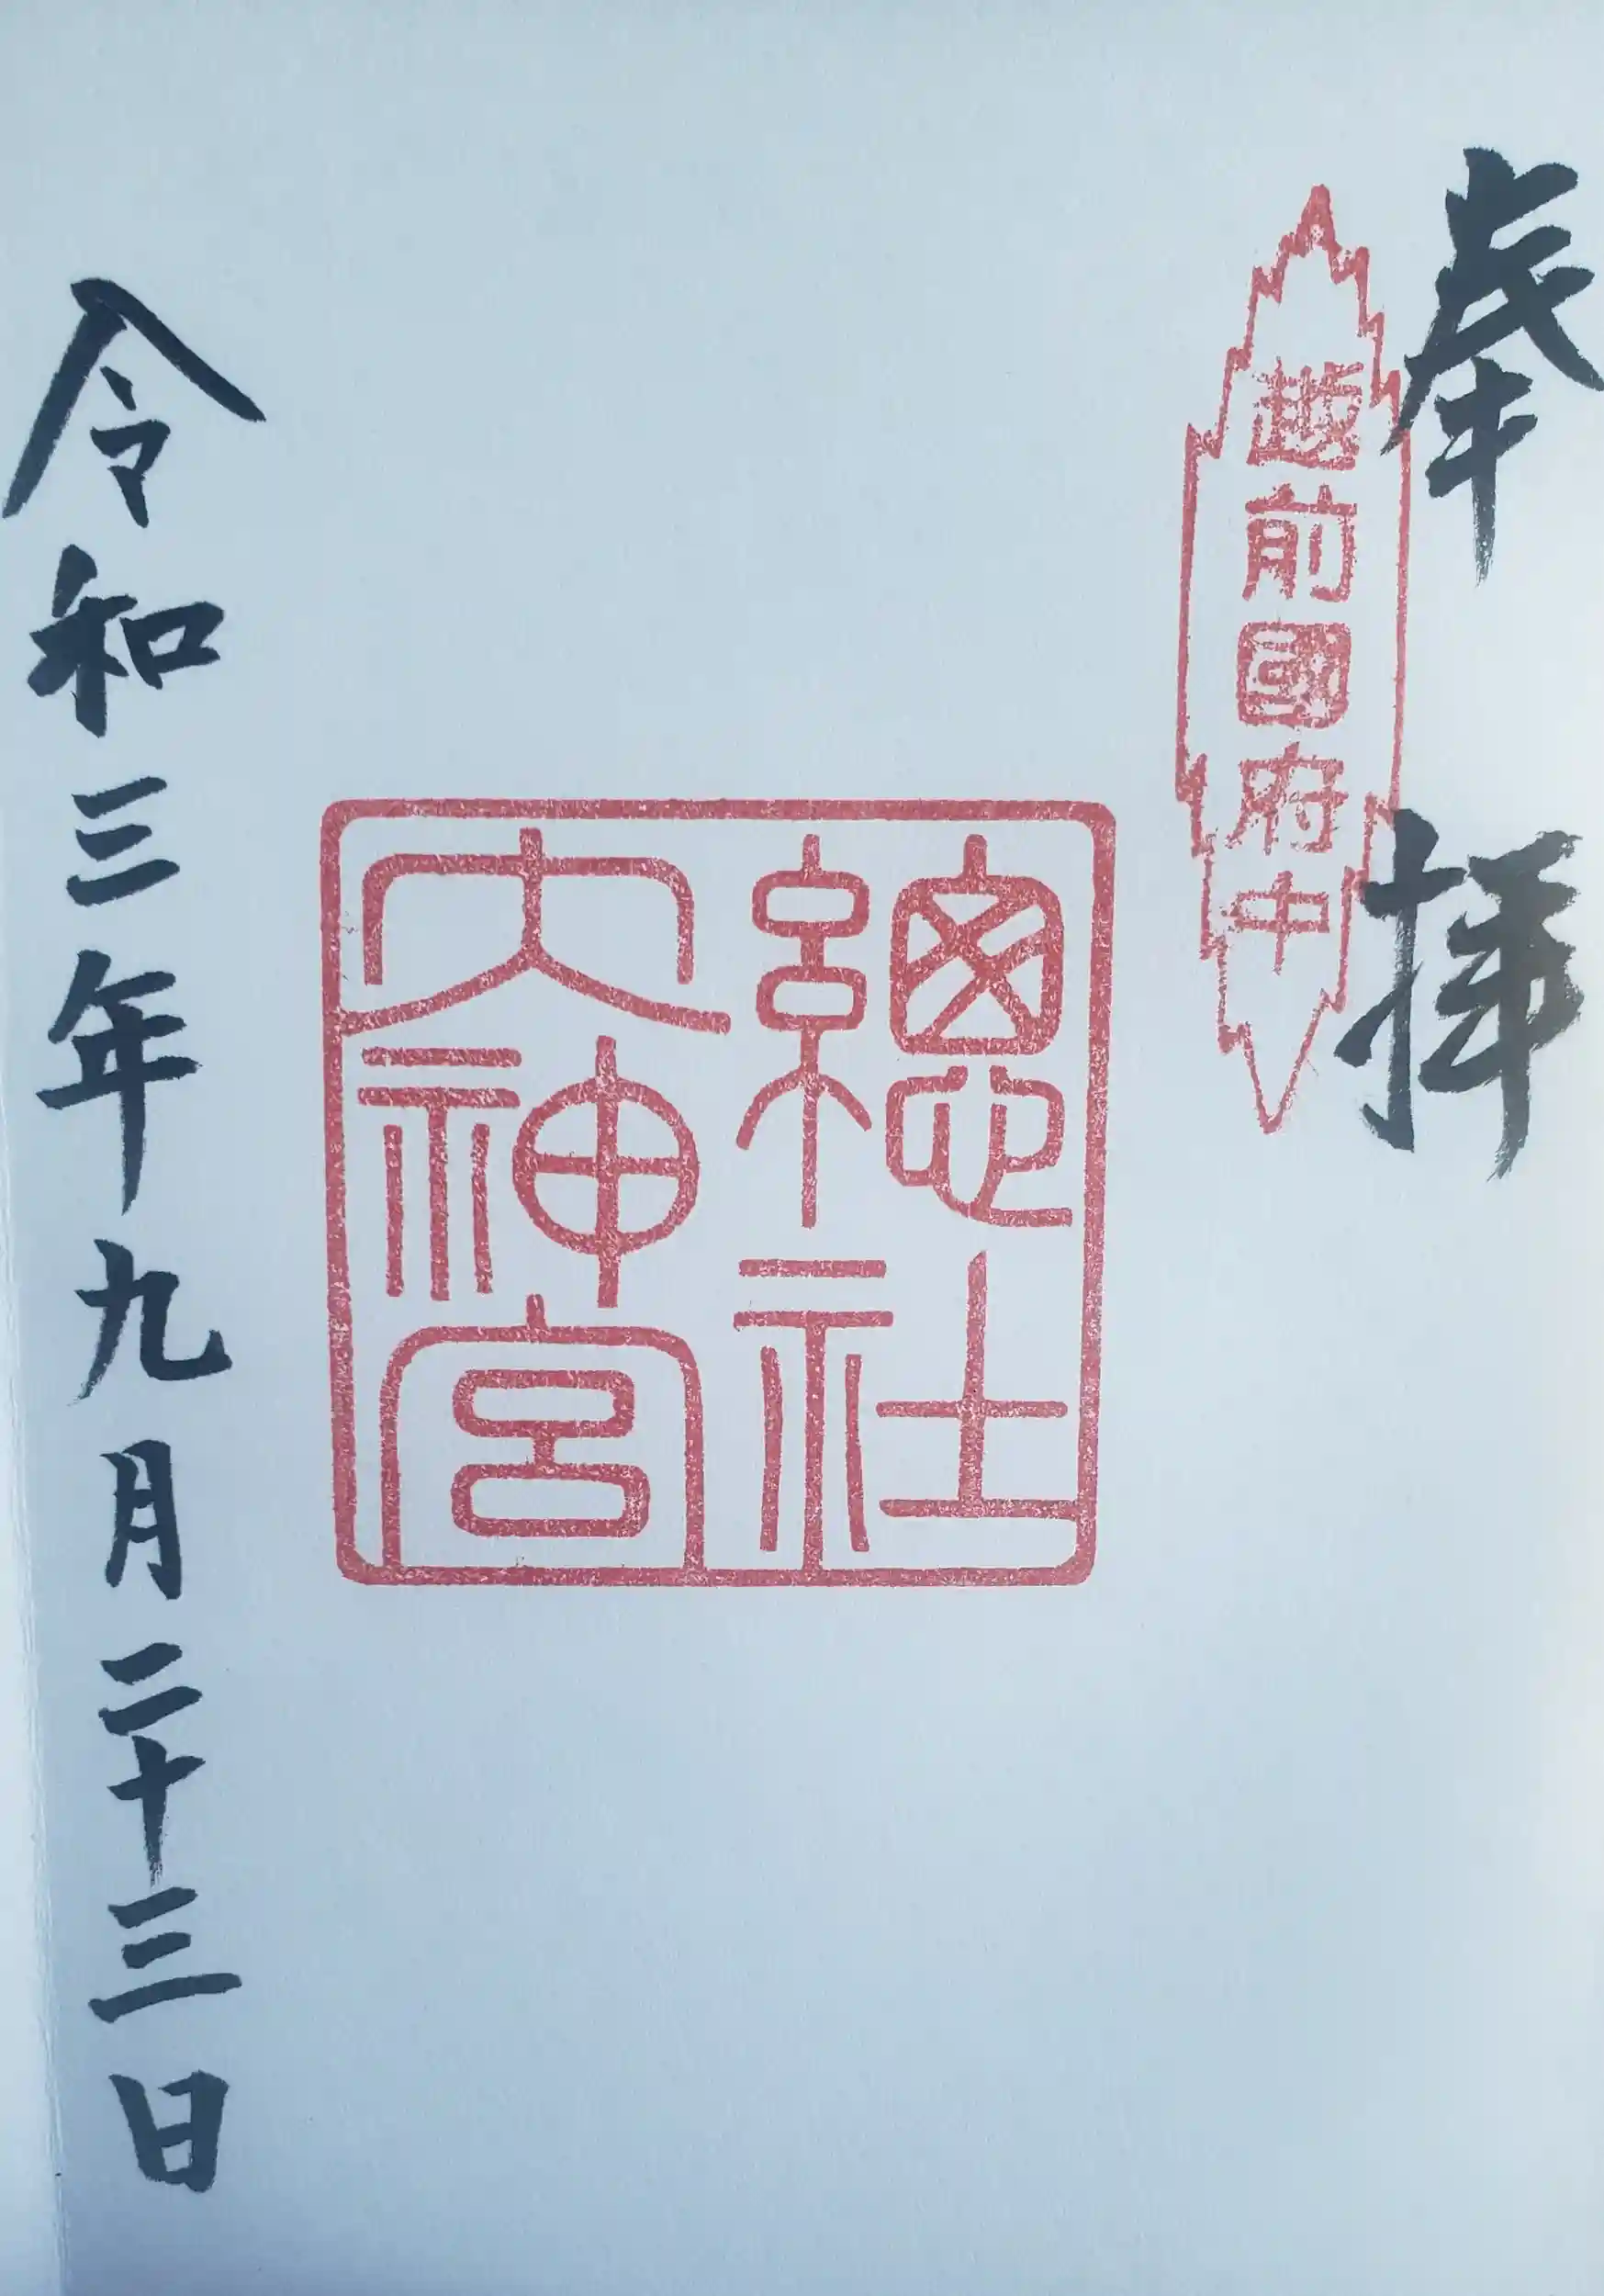 奉拝
越前國府中
總社
大神宮
令和三年九月二十三日